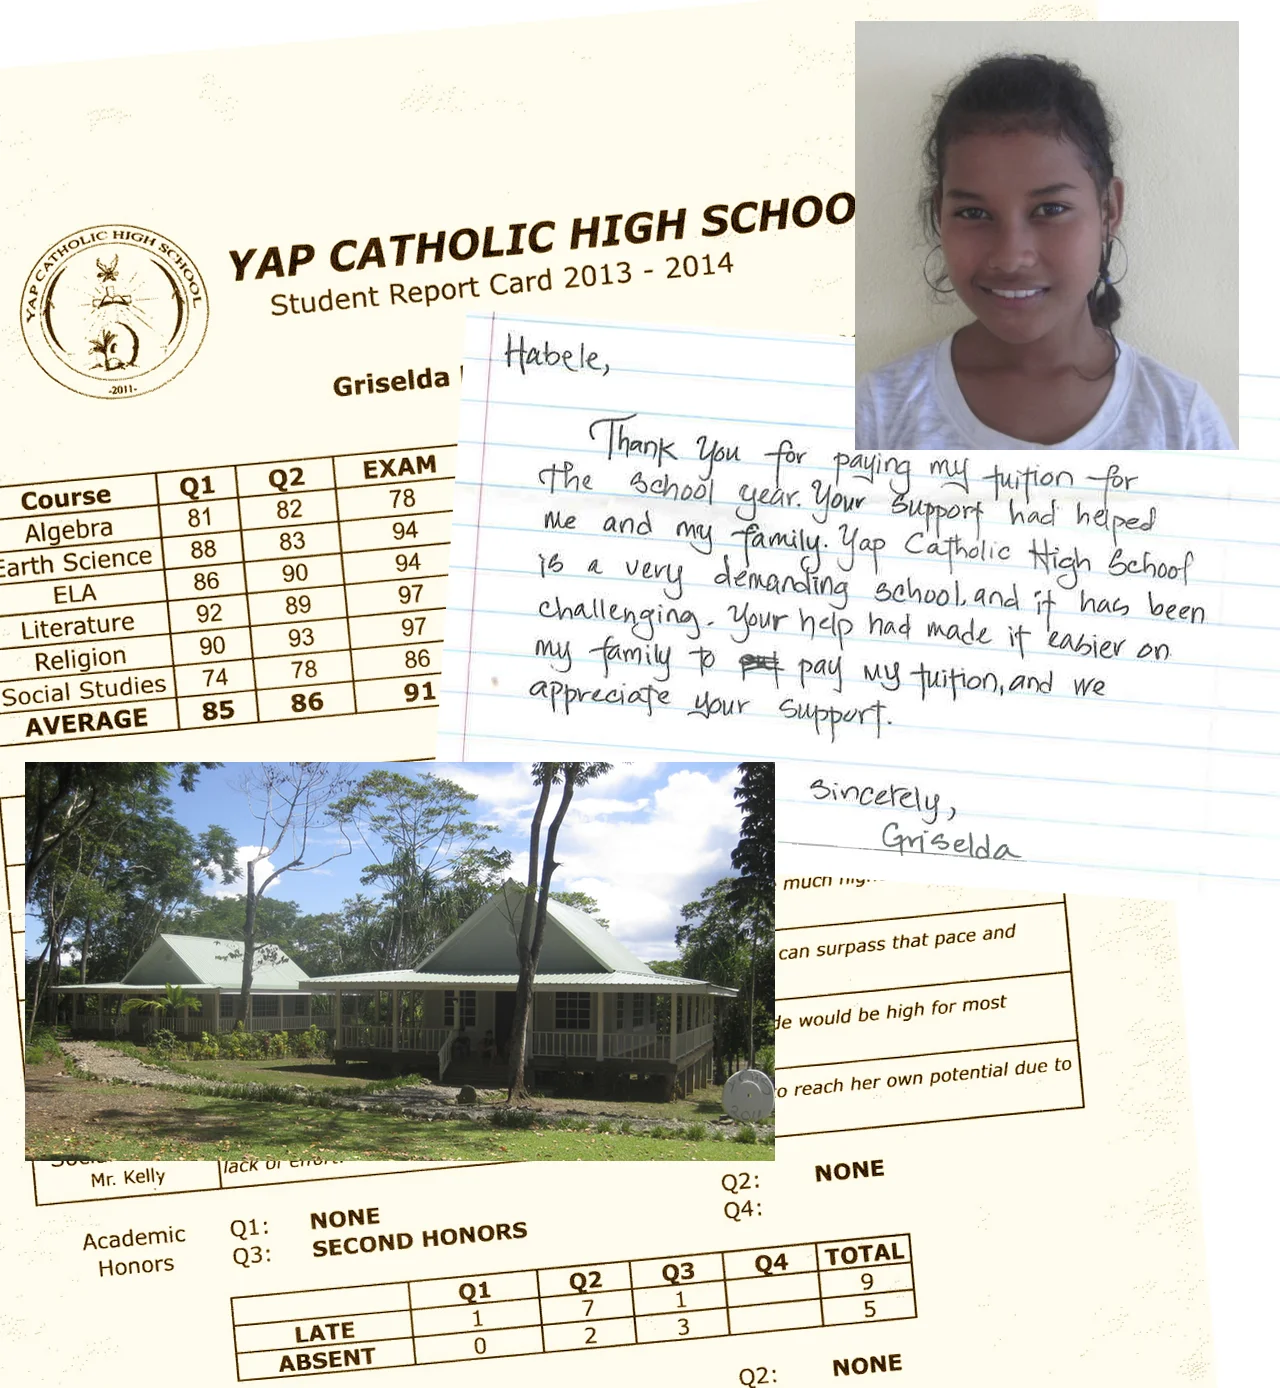 YAP CATHOLIC HIGH SCHOO
Student Report Card 2013 - 2014
YAP CATHOLIC HIGH SCHOOL
-2011-
Griselda
Course Q1 Q2 EXAM
Algebra 81 82 78
Earth Science 88 83 94
ELA 86 90 94
Literature 92 89 97
Religion 90 93 97
Social Studies 74 78 86
AVERAGE 85 86 91
Habele,
Thank You for paying my tuition for
the school year. Your support had helped
me and my family. Yap Catholic High School
is a very demanding school, and it has been
challenging. Your help had made it easier on
my family to pay my tuition, and we
appreciate your support.
Sincerely,
Griselda
much
can surpass that pace and
would be high for most
o reach her own potential due to
Mr. Kelly
lack of effort.
Academic Honors
Q1: NONE Q2: NONE
Q3: SECOND HONORS Q4:
Q1 Q2 Q3 Q4 TOTAL
LATE 1 7 1 9
ABSENT 0 2 3 5
Q2: NONE